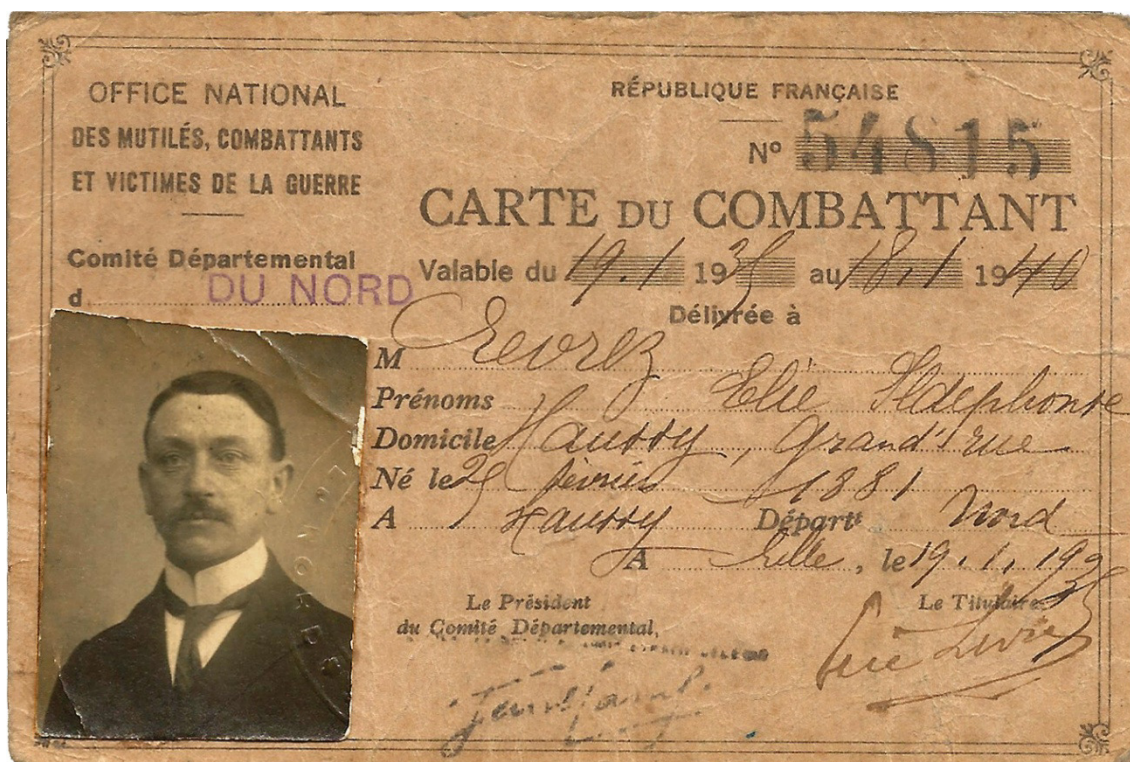 OFFICE NATIONAL
DES MUTILÉS, COMBATTANTS
ET VICTIMES DE LA GUERRE
Comité Départemental
d DU NORD
RÉPUBLIQUE FRANÇAISE
Nº 54815
CARTE DU COMBATTANT
Valable du 19.1 1935 au 18.1 1940
Délivrée à
M
Prénoms Elie Ildephonse
Domicile Haussy, Grand'rue
Né le 25 février 1881
A Haussy Départt Nord
A Lille, le 19.1.1935
Le Président
du Comité Départemental,
Le Titulaire